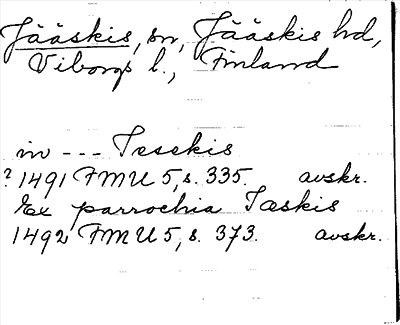 Jääskis, sn, Jääskis hd,
Viborgs l., Finland
in --- Iesekis
? 1491 FMU 5, s. 335. avskr.
Ex parrochia Iæskis
1492 FMU 5, s. 373. avskr.